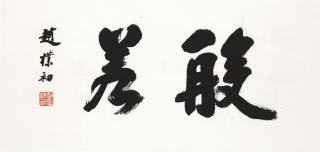 般若
趙樸初